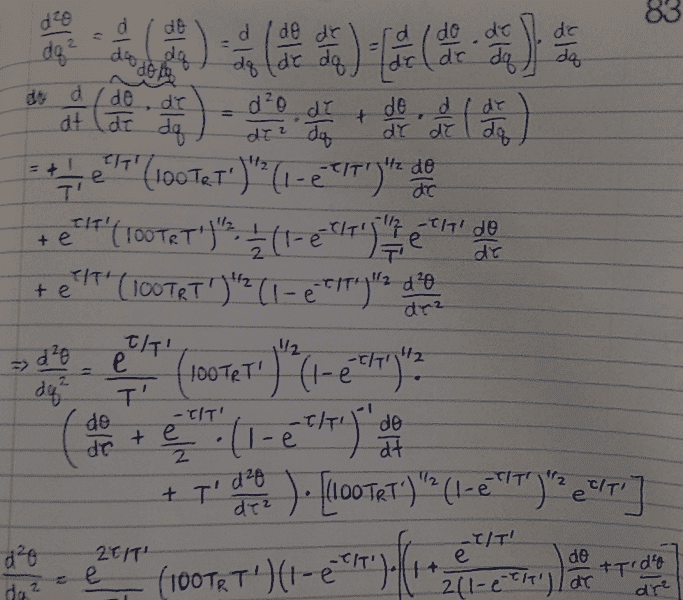 83
d²θ/dq² = d/dq (dθ/dq) = d/dq (dθ/dτ dτ/dq) = [d/dτ (dθ/dτ · dτ/dq)] · dτ/dq
dθ/dq
d/dt (dθ/dτ · dτ/dq) = d²θ/dτ² · dτ/dq + dθ/dτ · d/dτ (dτ/dq)
= + 1/T' e^(τ/T') (100T_R T')^(1/2) (1-e^(-τ/T'))^(1/2) dθ/dτ
+ e^(τ/T') (100T_R T')^(1/2) · 1/2 (1-e^(-τ/T'))^(-1/2) 1/T' e^(-τ/T') dθ/dτ
+ e^(τ/T') (100T_R T')^(1/2) (1-e^(-τ/T'))^(1/2) d²θ/dτ²
⇒ d²θ/dq² = e^(τ/T')/T' (100T_R T')^(1/2) (1-e^(-τ/T'))^(1/2) ·
( dθ/dτ + e^(-τ/T')/2 · (1-e^(-τ/T'))^(-1) dθ/dt
+ T' d²θ/dτ² ) · [(100T_R T')^(1/2) (1-e^(-τ/T'))^(1/2) e^(τ/T')]
d²θ/dq² = e^(2τ/T')/T' (100T_R T')(1-e^(-τ/T')) · [(1 + e^(-τ/T')/2(1-e^(-τ/T'))) dθ/dτ + T' d²θ/dτ²]